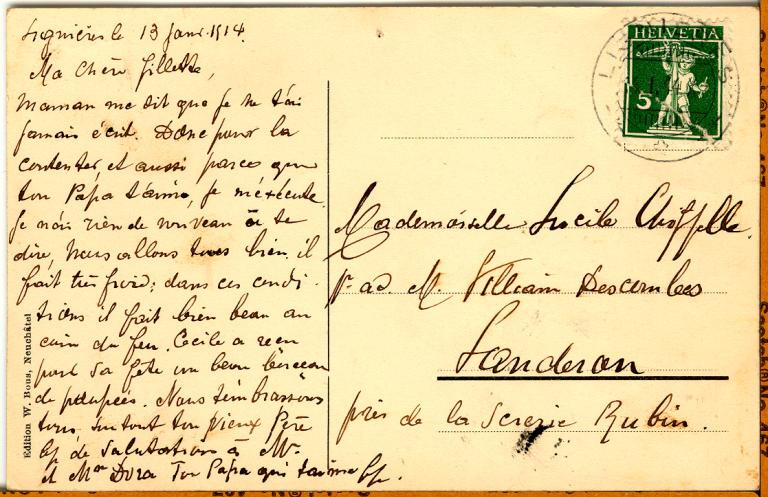 Lignières le 13 Janv. 1914.
Ma Chère fillette,
Maman me dit que je ne t'ai
jamais écrit. Donc pour la
contenter, et aussi parce que
ton Papa t'aime, je m'exécute.
Je n'ais rien de nouveau à te
dire, Nous allons tous bien, il
fait très froid; dans ces condi-
tions il fait bien beau au
coin du feu. Cecile a reçu
pour sa fête un beau berceau
de poupées. Nous t'embrassons
tous, surtout ton vieux Père
de salutations à Mr.
et Mme Ton Papa qui t'aime
HELVETIA
5
Mademoiselle Lucile
p. ad. M. William Descombes
Landeron
près de la Scierie Rubin.
Edition W. Bous, Neuchâtel